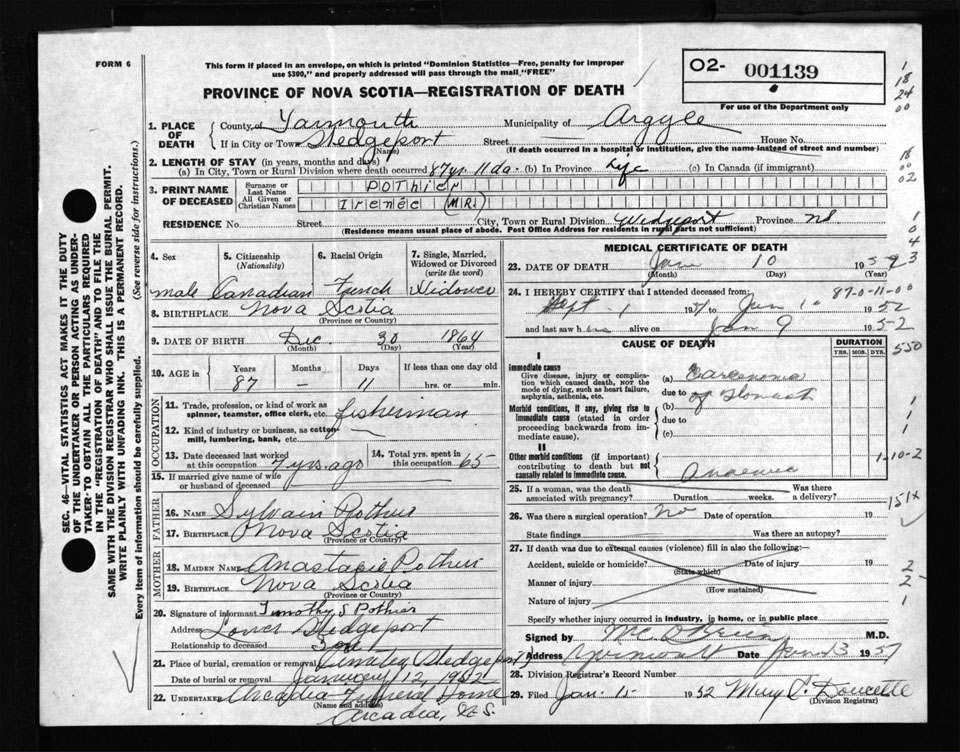 FORM 6
This form if placed in an envelope, on which is printed "Dominion Statistics—Free, penalty for improper
use $300," and properly addressed will pass through the mail "FREE"
O2- 001139
For use of the Department only
PROVINCE OF NOVA SCOTIA—REGISTRATION OF DEATH
1. PLACE OF DEATH { County of Yarmouth Municipality of Argyle
If in City or Town Wedgeport Street House No.
(Name) (If death occurred in a hospital or institution, give the name instead of street and number)
2. LENGTH OF STAY (in years, months and days)
(a) In City, Town or Rural Division where death occurred 87 yr. 11 da. (b) In Province Life (c) In Canada (if immigrant)
3. PRINT NAME OF DECEASED { Surname or Last Name POTHIER
All Given or Christian Names Irenée (MR.)
RESIDENCE No. Street City, Town or Rural Division Wedgeport Province NS
(Residence means usual place of abode. Post Office Address for residents in rural parts not sufficient)
4. Sex 5. Citizenship (Nationality) 6. Racial Origin 7. Single, Married, Widowed or Divorced (write the word)
male Canadian French Widower
8. BIRTHPLACE Nova Scotia
(Province or Country)
9. DATE OF BIRTH Dec. 30 1864
(Month) (Day) (Year)
10. AGE in { Years Months Days If less than one day old
87 — 11 hrs. or min.
OCCUPATION
11. Trade, profession, or kind of work as spinner, teamster, office clerk, etc. fisherman
12. Kind of industry or business, as cotton-mill, lumbering, bank, etc. —
13. Date deceased last worked at this occupation 7 yrs. ago 14. Total yrs. spent in this occupation 65
15. If married give name of wife or husband of deceased
FATHER
16. NAME Sylvain Pothier
17. BIRTHPLACE Nova Scotia
(Province or Country)
MOTHER
18. MAIDEN NAME Anastasie Pothier
19. BIRTHPLACE Nova Scotia
(Province or Country)
20. Signature of informant Timothy S Pothier
Address Lower Wedgeport
Relationship to deceased Son
21. Place of burial, cremation or removal Wedgeport
Date of burial or removal January 12, 1952
22. UNDERTAKER Arcadia Funeral Home
(Name and address)
Arcadia, N.S.
MEDICAL CERTIFICATE OF DEATH
23. DATE OF DEATH Jan 10 1952
(Month) (Day) (Year)
24. I HEREBY CERTIFY that I attended deceased from: 87-0-11-00
Sept. 1 1951 to Jan 10 1952
and last saw him alive on Jan 9 1952
CAUSE OF DEATH DURATION
YRS. MOS. DYS.
I
Immediate cause
Give disease, injury or complication which caused death, NOT the mode of dying, such as heart failure, asphyxia, asthenia, etc.
(a) Carcinoma
due to of Stomach
Morbid conditions, if any, giving rise to immediate cause (stated in order proceeding backwards from immediate cause).
(b)
due to
(c)
II
Other morbid conditions (if important) contributing to death but not causally related to immediate cause.
Anaemia
25. If a woman, was the death associated with pregnancy? Duration weeks. Was there a delivery?
26. Was there a surgical operation? no Date of operation 19
State findings Was there an autopsy?
27. If death was due to external causes (violence) fill in also the following:—
Accident, suicide or homicide? Date of injury 19
(State which)
Manner of injury
(How sustained)
Nature of injury
Specify whether injury occurred in industry, in home, or in public place
Signed by M.D.
Address Yarmouth Date Jan 13 195
28. Division Registrar's Record Number
29. Filed Jan. 15 1952 Mary C. Doucette
(Division Registrar)
SEC. 46—VITAL STATISTICS ACT MAKES IT THE DUTY
OF THE UNDERTAKER OR PERSON ACTING AS UNDER-
TAKER: TO OBTAIN ALL THE PARTICULARS REQUIRED
IN THE "REGISTRATION OF DEATH" AND TO FILE THE
SAME WITH THE DIVISION REGISTRAR WHO SHALL ISSUE THE BURIAL PERMIT.
WRITE PLAINLY WITH UNFADING INK. THIS IS A PERMANENT RECORD.
Every item of information should be carefully supplied. (See reverse side for instructions.)
1
18
24
00
18
00
02
1
0
4
3
550
1
1
1-10-2
151x
2
2
1